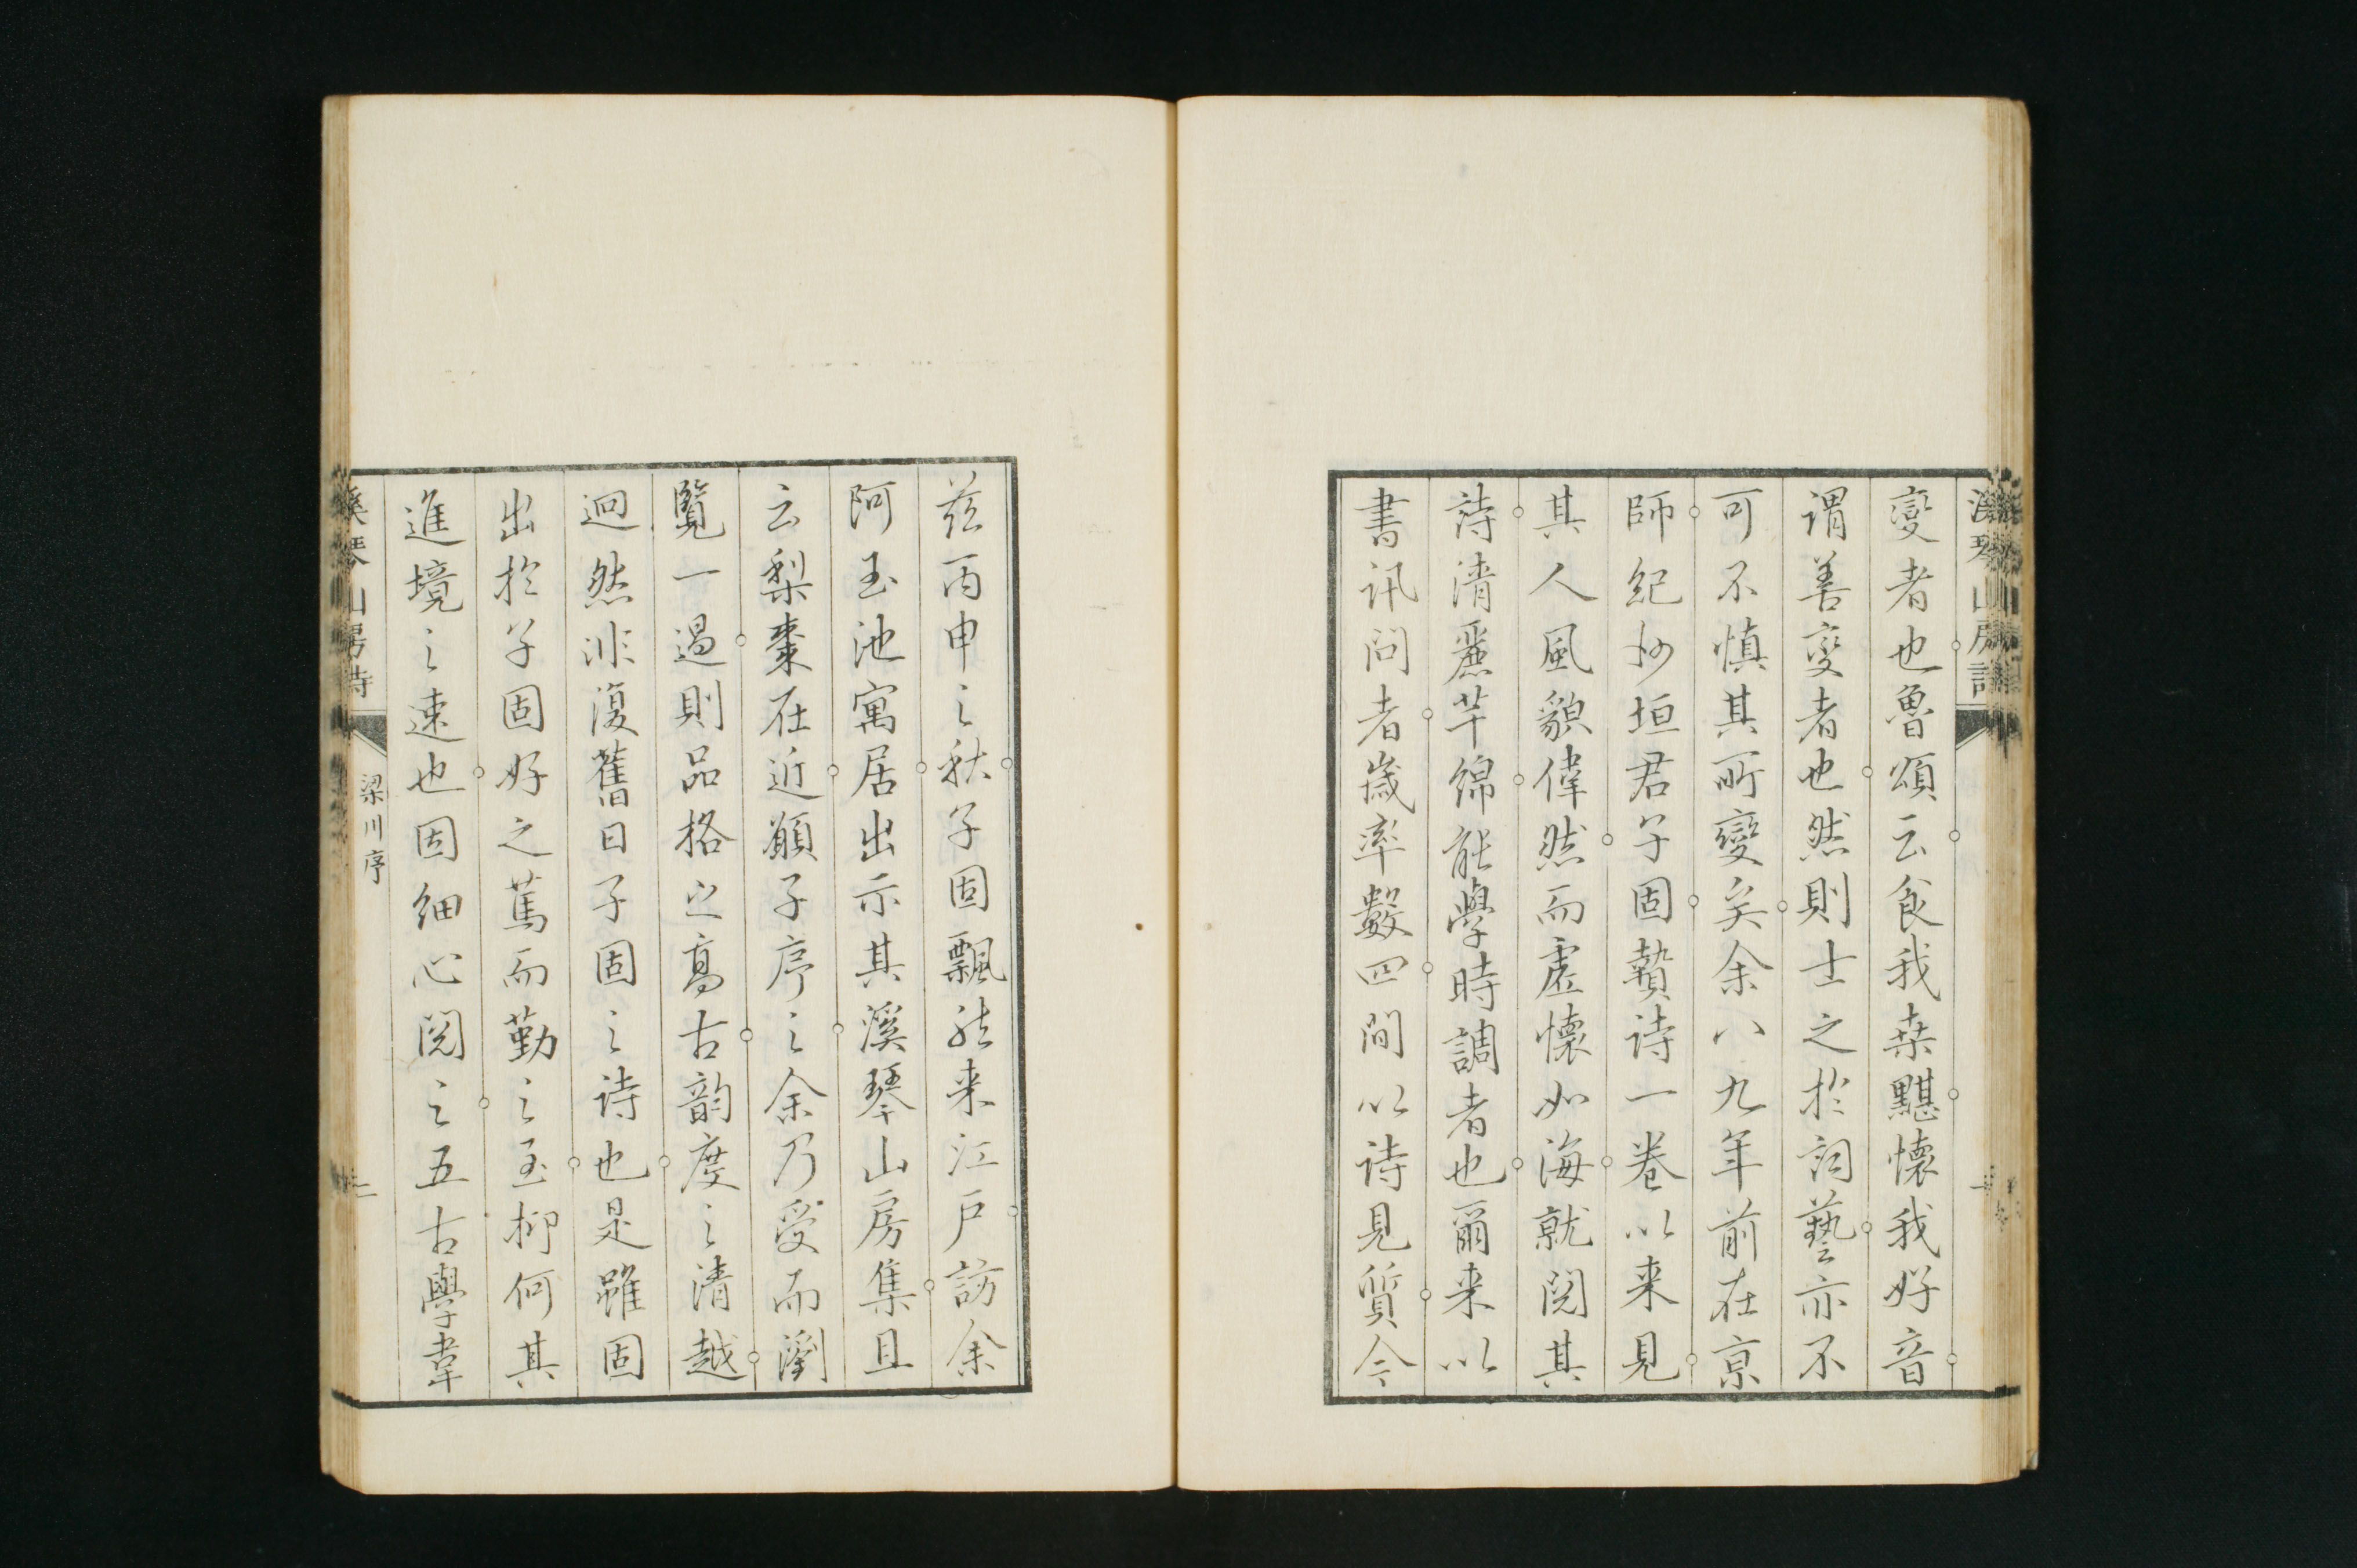 溪琴山房詩
變者也魯頌云食我桒黮懷我好音
謂善變者也然則士之於詞藝亦不
可不慎其所變矣余八九年前在京
師紀妙垣君子固贄詩一卷以来見
其人風貌偉然而虛懷如海就閲其
詩清麗芊綿能學時調者也爾来以
書訊問者歳率數四間以詩見質今
茲丙申之秋子固飄然来江戸訪余
阿玉池寓居出示其溪琴山房集且
云梨棗在近願子序之余乃受而瀏
覽一過則品格之高古韵度之清越
迥然非復舊日子固之詩也是雖固
出於子固好之篤而勤之至抑何其
進境之速也因細心閲之五古學韋
溪琴山房詩
梁川序
二